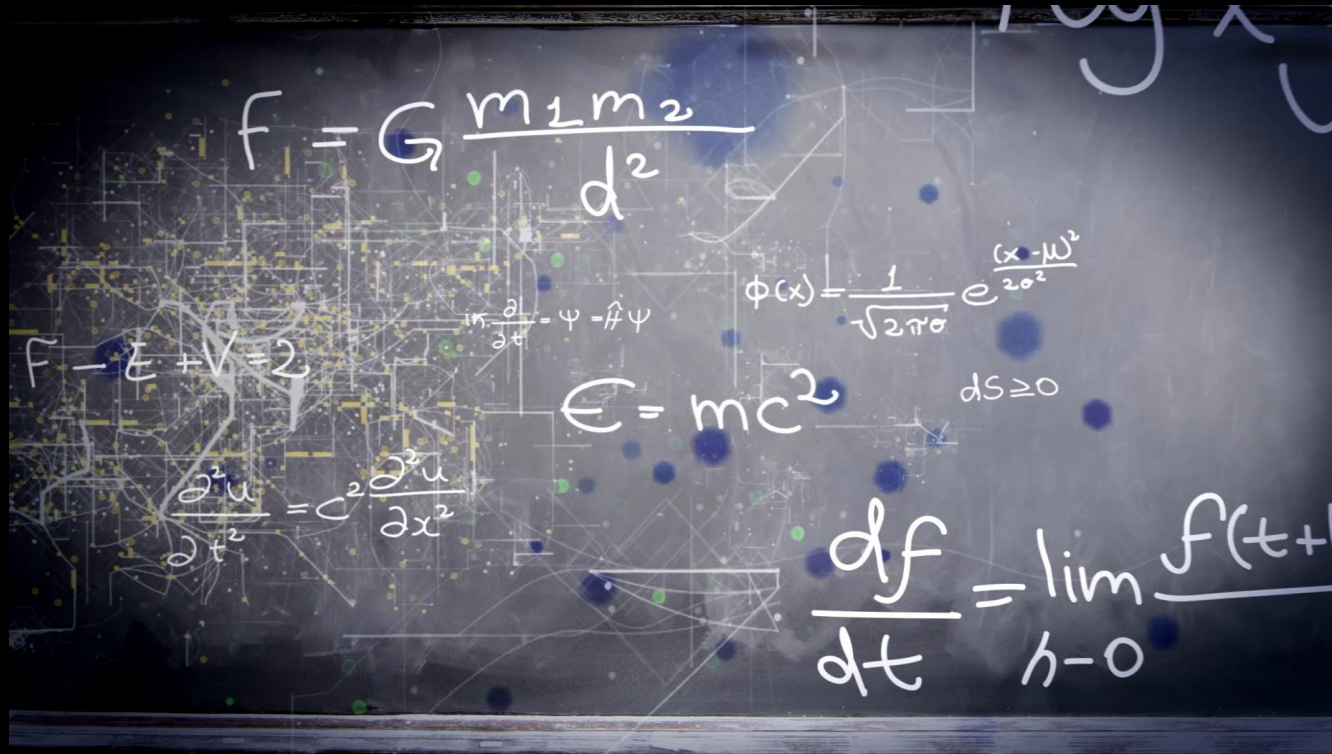 log x y
F = G m1m2 / d²
ϕ(x) = 1 / √2πσ e (x-μ)² / 2σ²
iħ ∂ / ∂t = Ψ = Ĥ Ψ
F - E + V = 2
E = mc²
dS ≥ 0
∂²u / ∂t² = c² ∂²u / ∂x²
df / dt = lim h-0 f(t+